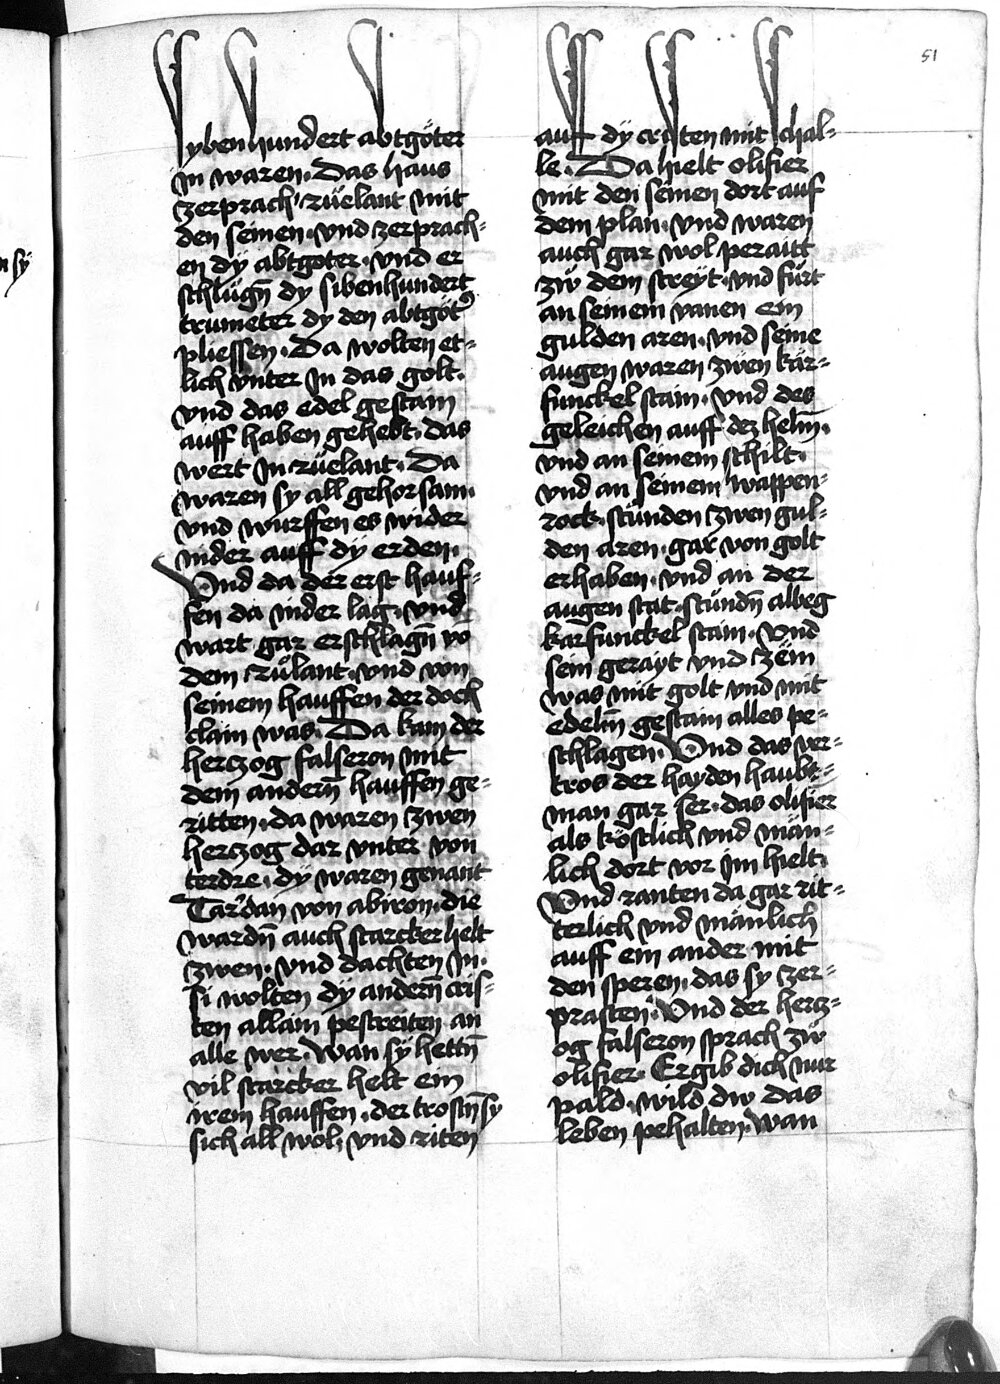 51
syben hundert abtgöter
in waren. Das haus
zerprach rüelant mit
den seinen. vnd zerprach-
en dy abtgoter. vnd er
schlügn̄ dy sibenhundert
trumeter dy den abtgöt᾿
pliessen. Da wolten et-
lich vnter in das golt.
vnd das edel gestain
auff haben gehebt. das
wert in rüelant. Da
waren sy all gehorsam.
vnd wurffen es wider
nider auff dy erden.
Vnd da der erst hauf-
fen da nider lag. vnd
wart gar erschlagn̄ vō
dem rülant. vnd von
seinem hauffen der doch
clain was. Da kam der
herczog falseron mit
dem andern̄ hauffen ge-
ritten. da waren zwen
herczog dar vnter von
terdre. dy waren genant
Tardan von abiron. die
wardn̄ auch starcker helt
zwen. vnd dachten in.
si wolten dy andern̄ cris-
ten allain pestreiten an
alle wer. Wan sÿ hettn̄
vil starcker helt ein
irem hauffen. der trostn̄ sy
sich all wol. vnd riten
auff dÿ cristen mit schal-
le. Da hielt olifier
mit den seinen dort auf
dem plan. vnd waren
auch gar wol peraitt
zü dem streÿt. vnd fürt
an seinem vanen ein
gulden aren. vnd seine
augen waren zwen kar-
funckel stain. vnd des
geleichen auff dez helm̄.
vnd an seinem schilt.
vnd an seinem wappen-
rock. stünden zwen gul-
den aren. gar von golt
erhaben. vnd an der
augen stat. stündn̄ albeg
karfunckel stain. Vnd
sein gerayt vnd zëm
was mit golt vnd mit
edelm̄ gestain alles pe-
schlagen. Vnd das ver-
tros der hayden haubt-
man gar ser. das olifier
als köstlich vnd män-
lich dort vor im hielt.
Vnd ranten da gar rit-
terlich vnd mänlich
auff ein ander mit
den speren. das sy zer-
prasten. Vnd der hercz-
og falseron sprach zü
olifier. Ergib dich nur
pald. wild dw das
leben pehalten. Wan